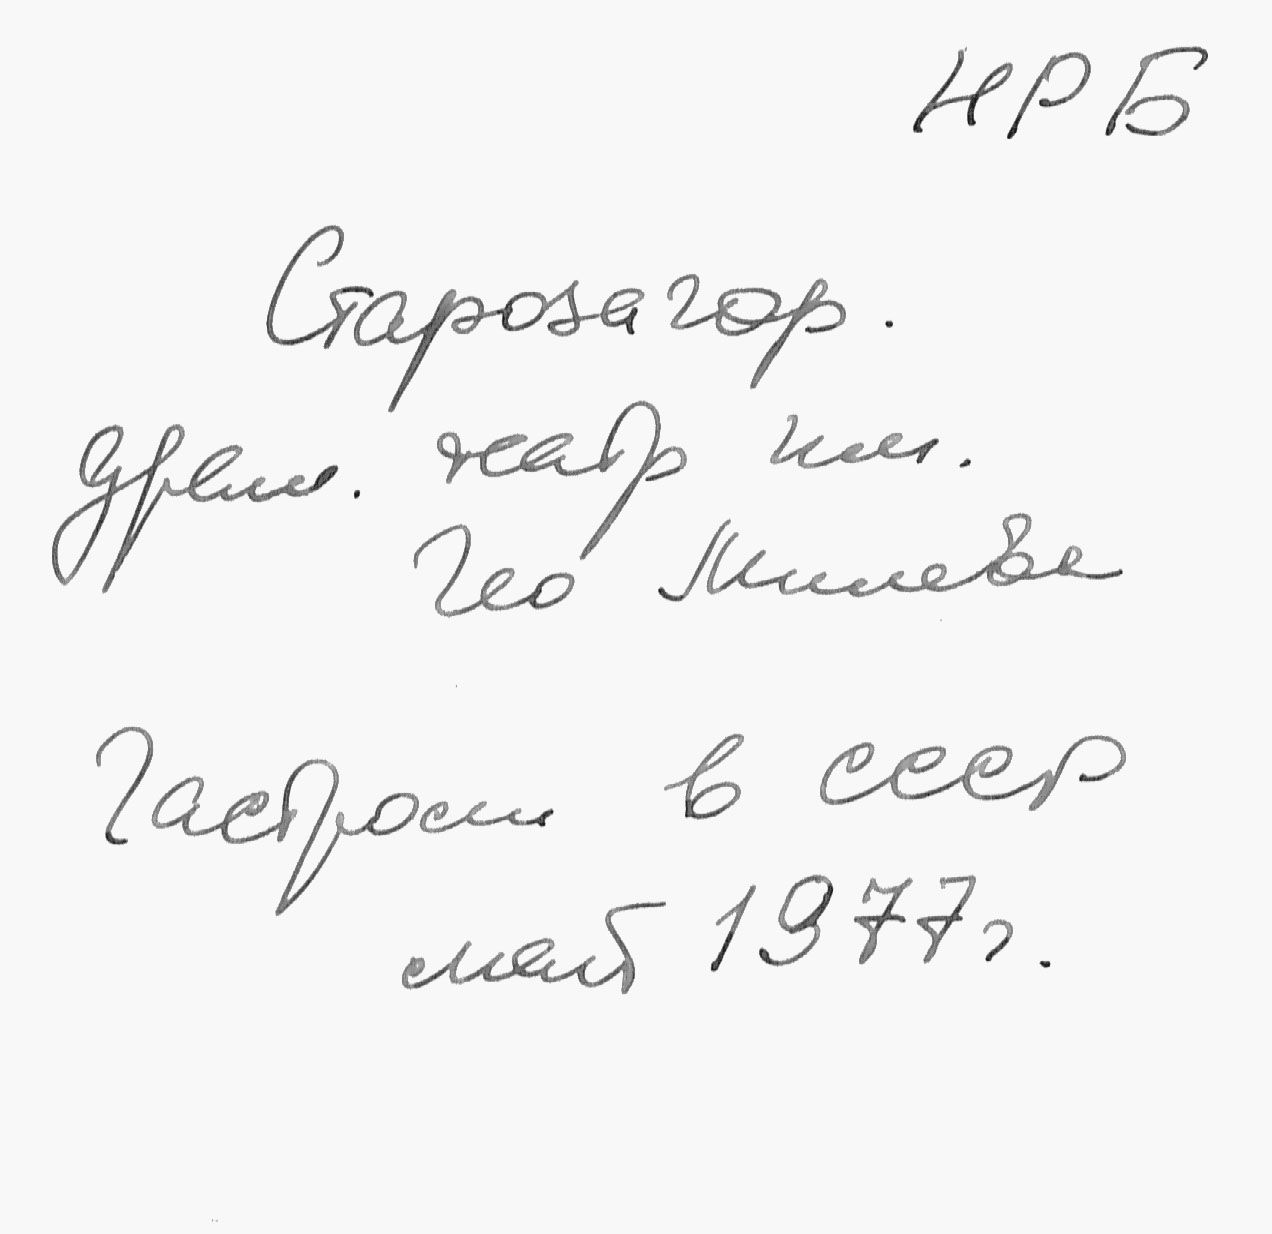 НРБ
Старозагор.
драм. театр им.
Гео Милева
Гастроли в СССР
май 1977 г.